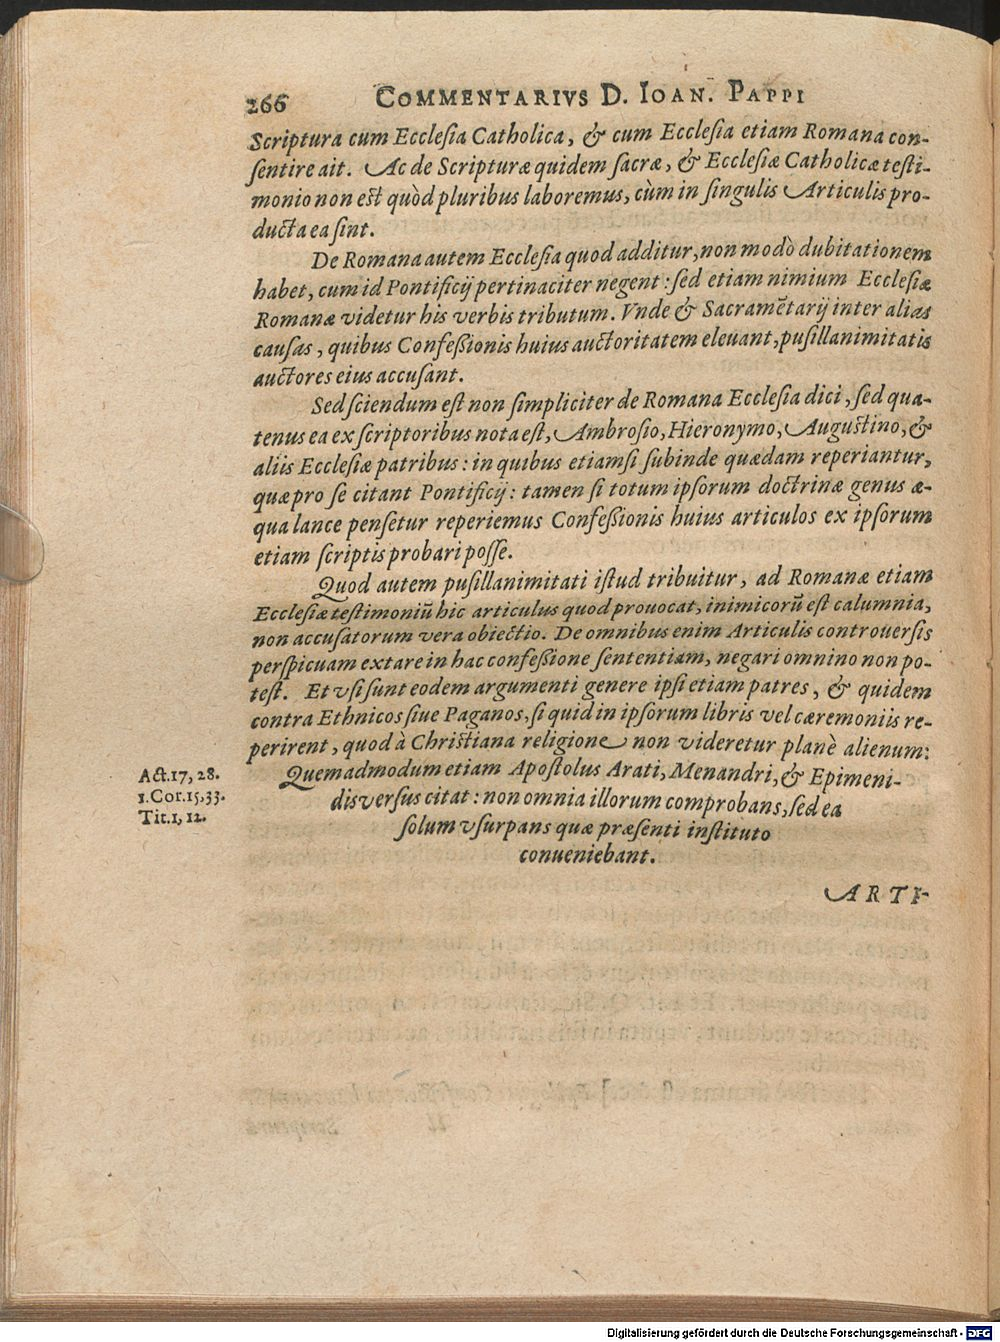 266 COMMENTARIVS D. IOAN. PAPPI
Scriptura cum Ecclesia Catholica, & cum Ecclesia etiam Romana con-
sentire ait. Ac de Scripturæ quidem sacræ, & Ecclesiæ Catholicæ testi-
monio non est quòd pluribus laboremus, cùm in singulis Articulis pro-
ducta ea sint.
De Romana autem Ecclesia quod additur, non modò dubitationem
habet, cum id Pontificij pertinaciter negent: sed etiam nimium Ecclesiæ
Romanæ videtur his verbis tributum. Vnde & Sacramẽtarij inter alias
causas, quibus Confeßionis huius auctoritatem eleuant, pusillanimitatis
auctores eius accusant.
Sed sciendum est non simpliciter de Romana Ecclesia dici, sed qua-
tenus ea ex scriptoribus nota est, Ambrosio, Hieronymo, Augustino, &
aliis Ecclesiæ patribus: in quibus etiamsi subinde quædam reperiantur,
quæ pro se citant Pontificij: tamen si totum ipsorum doctrinæ genus æ-
qua lance pensetur reperiemus Confeßionis huius articulos ex ipsorum
etiam scriptis probari posse.
Quod autem pusillanimitati istud tribuitur, ad Romanæ etiam
Ecclesiæ testimoniũ hic articulus quod prouocat, inimicorũ est calumnia,
non accusatorum vera obiectio. De omnibus enim Articulis controuersis
perspicuam extare in hac confeßione sententiam, negari omnino non po-
test. Et vsi sunt eodem argumenti genere ipsi etiam patres, & quidem
contra Ethnicos siue Paganos, si quid in ipsorum libris vel cæremoniis re-
perirent, quod à Christiana religione non videretur planè alienum:
Act. 17, 28. Quemadmodum etiam Apostolus Arati, Menandri, & Epimeni-
1. Cor. 15. 33. dis versus citat: non omnia illorum comprobans, sed ea
Tit. 1, 12. solum vsurpans quæ præsenti instituto
conueniebant.
ARTI-
Digitalisierung gefördert durch die Deutsche Forschungsgemeinschaft - DFG